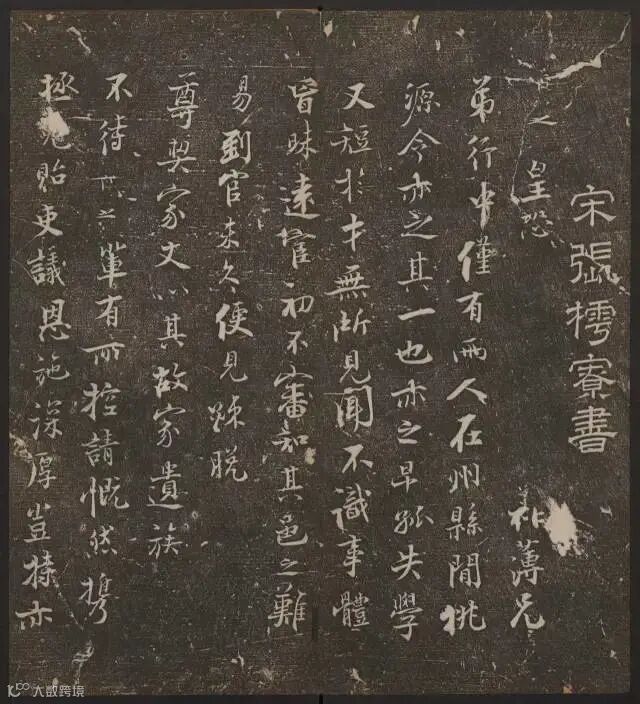 宋張樗寮書
皇恐 祉薄兄
弟行中僅有兩人在州縣間桃
源令亦之其一也亦之早孤失學
又短於才無所見聞不識事體
昏昧遠官初不審知其邑之難
易到官未久便見踈脫
尊契家丈以其故家遺族
不待 之輩有所控請慨然擕
拯免貽吏議恩施深厚豈捄亦
大数跨境